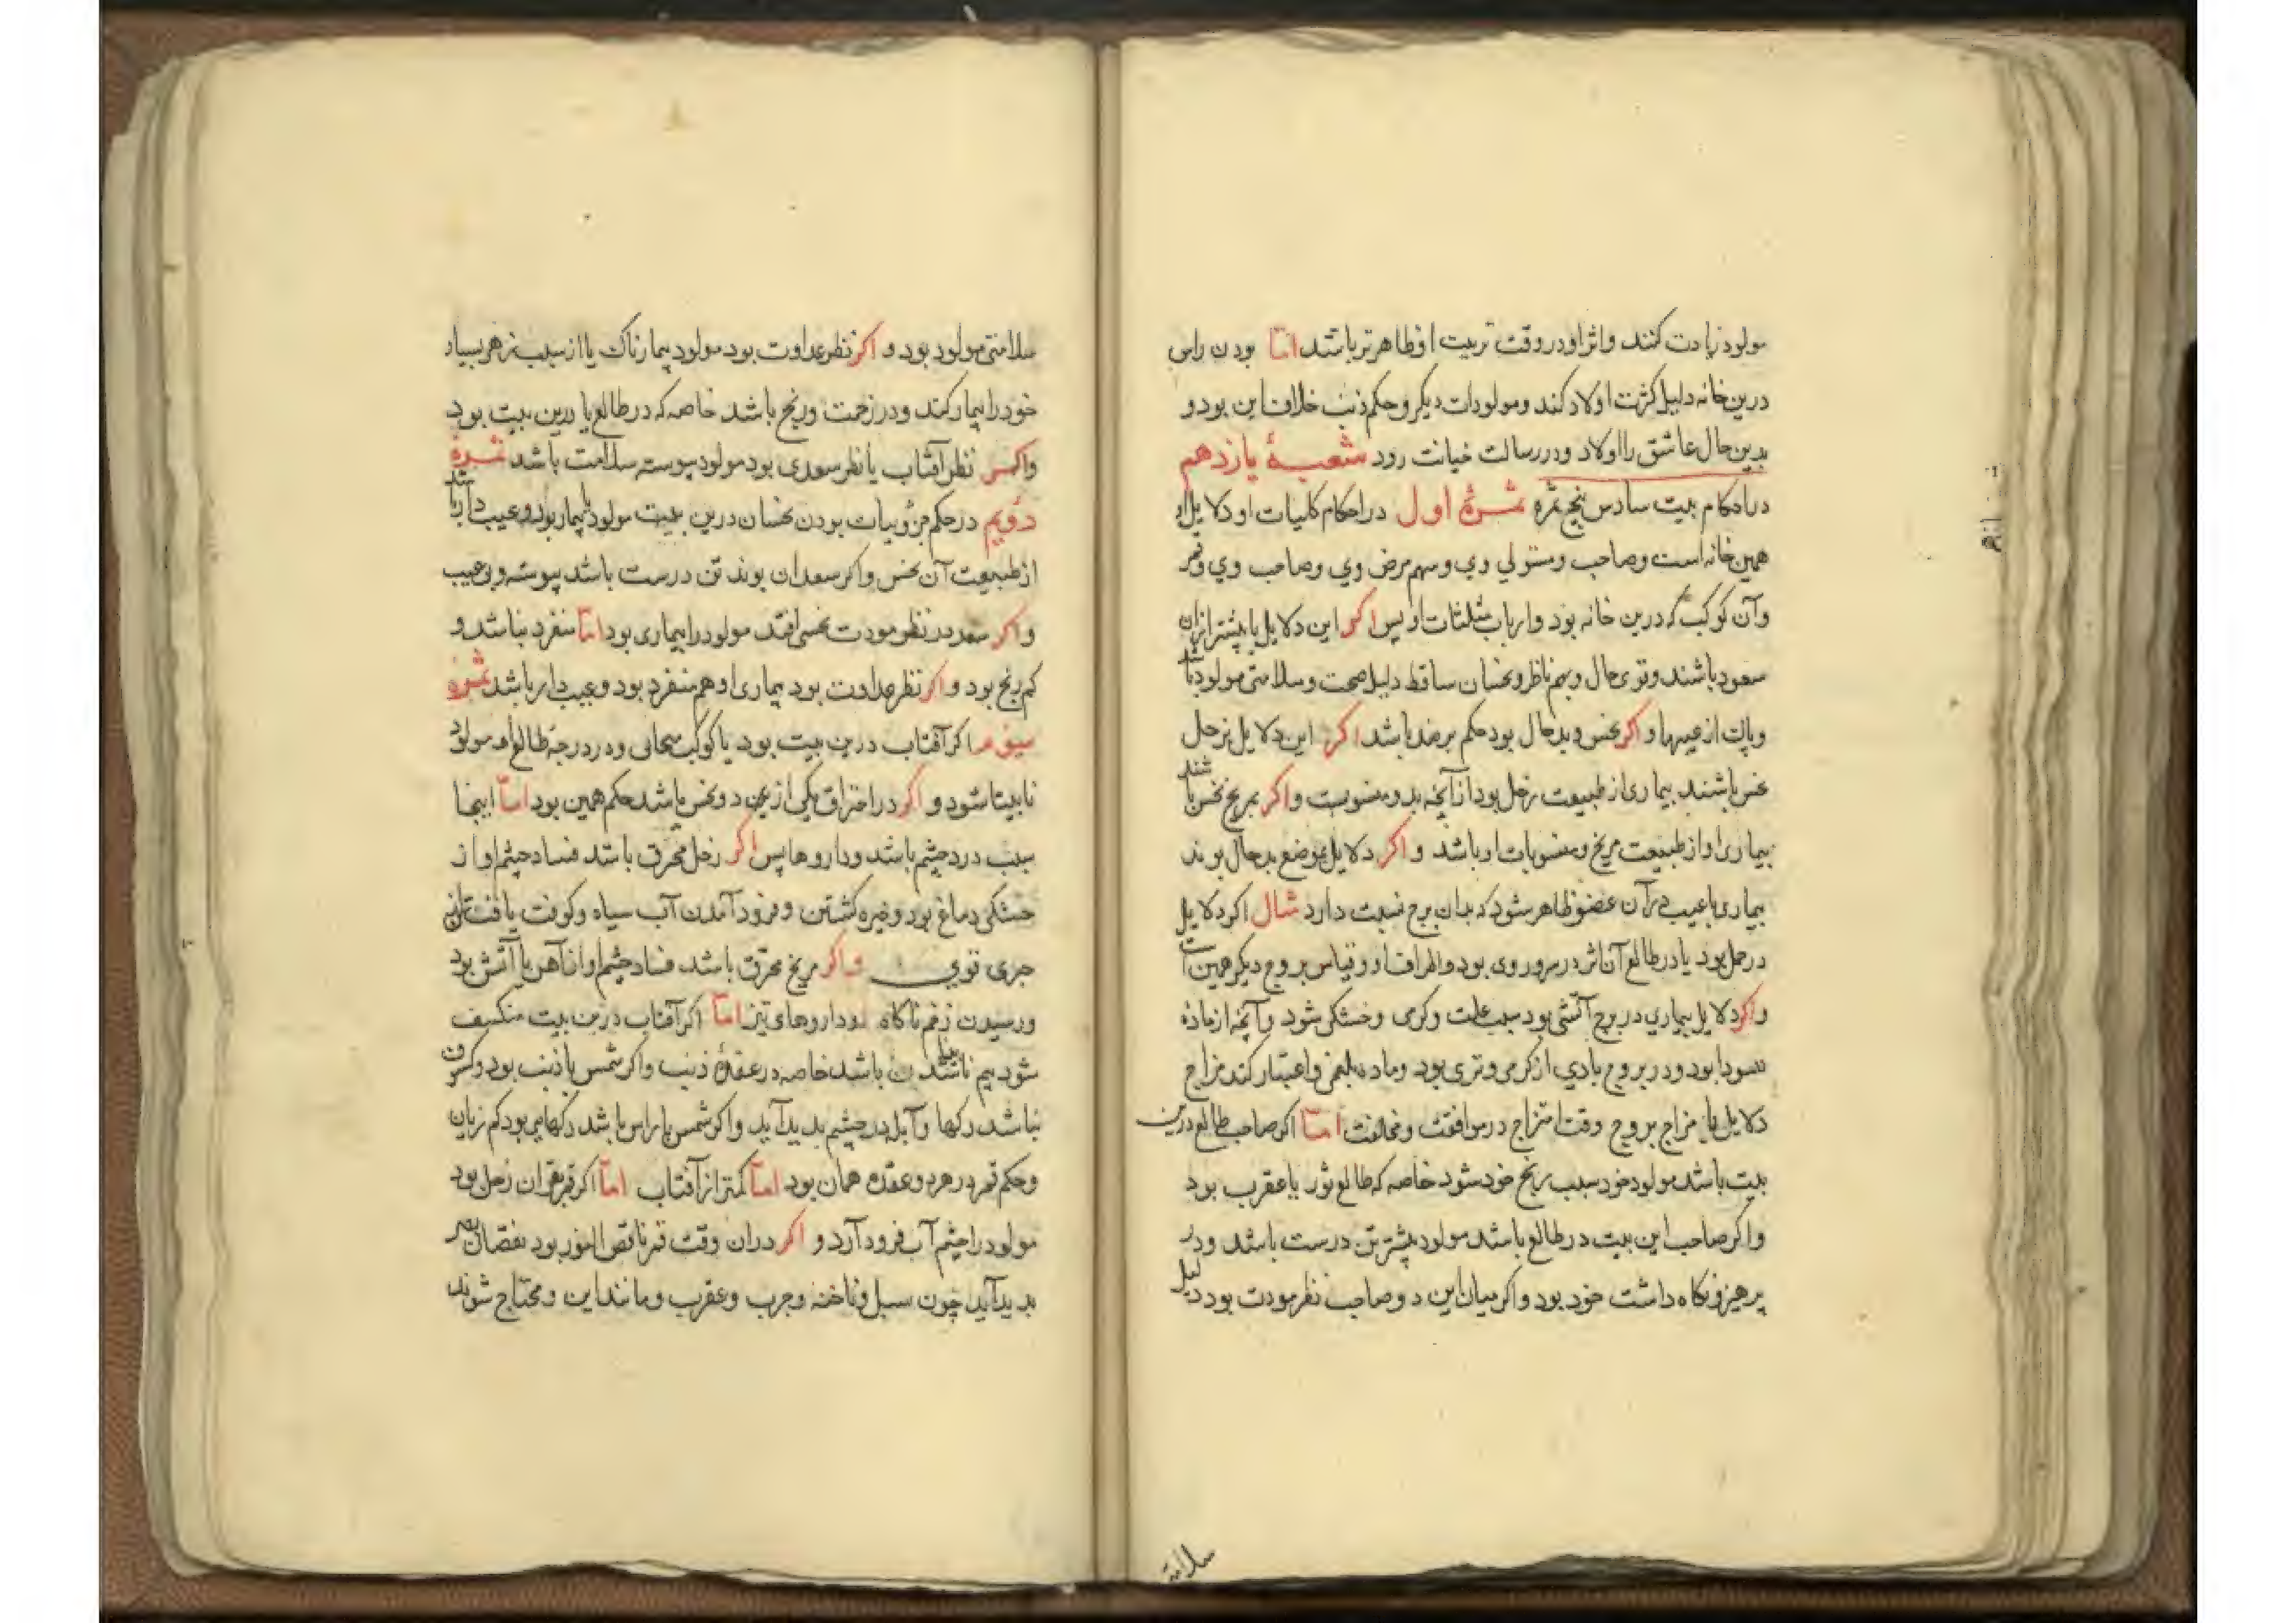 مولود زیادت کنند واثر او در وقت تربیت او ظاهرتر باشد اما بودن راس
درین خانه دلیل کثرت اولاد کند ومولودات دیکر وحکم ذنب خلاف این بود و
بدین حال عاشق را اولاد ودر رسالت خیانت رود شعبهٔ یازدهم
در احکام بیت سادس پنج ثمره ثمرهٔ اول در احکام کلیات او دلایل او
همین خانه است وصاحب ومستولی وی وسهم مرض وی وصاحب وی وقمر
وآن کوکب که درین خانه بود وارباب مثلثات او پس اکر این دلایل یا بیشتر ازان
سعود باشند وقوی حال وبهم ناظر ونحسان ساقط دلیل صحت وسلامتی مولود باشد
وپاک از عیبها و اکر نحس وبدحال بود حکم برضد باشد اکر این دلایل زحل
نحس باشند بیماری از طبیعت زحل بود از آنچه بدو منسوبست و اکر مریخ نحس باشند
بیماری او از طبیعت مریخ ومنسوبات او باشد و اکر دلایل بموضع بدحال بوند
بیماری یا عیب در آن عضو ظاهر شود که بدان برج نسبت دارد مثال اکر دلایل
در حمل بود یا در طالع آن اثر در سر وروی بود واطراف او وقیاس بروج دیکر همین است
و اکر دلایل بیماری در برج آتشی بود سبب علت وکرمی وخشکی شود وآنچه از مادهٔ
سودا بود ودر بروج بادی از کرمی وتری بود وماده بلغمی واعتبار کند مزاج
دلایل با مزاج بروج وقت امتزاج در موافقت ومخالفت اما اکر صاحب طالع درین
بیت باشد مولود خود سبب رنج خود شود خاصه که طالع ثور یا عقرب بود
واکر صاحب این بیت در طالع باشد مولود بیشتر تن درست باشد ودر
پرهیز ونکاه داشت خود بود واکر میان این دو صاحب نظر مودت بود دلیل
سلامتی
سلامتی مولود بود و اکر نظر عداوت بود مولود بیمارناک یا از سبب زهر بسیار
خود را بیمار کند ودر زحمت ورنج باشد خاصه که در طالع یا درین بیت بود
واکر نظر آفتاب یا نظر سعدی بود مولود پیوسته سلامت باشد ثمرهٔ
دویم در حکم جزویات بودن نحسان درین بیت مولود بیمار بود وعیب دار باشد
از طبیعت آن نحس واکر سعدان بوند تن درست باشد پیوسته وبی عیب
و اکر سعد در نظر مودت نحسی افتد مولود را بیماری بود اما منفرد نباشد و
کم رنج بود و اکر نظر عداوت بود بیماری او هم منفرد بود وعیب دار باشد ثمرهٔ
سیوم اکر آفتاب درین بیت بود یا کوکب سحابی ودر درجهٔ طالع افتد مولود
نابینا شود و اکر در احتراق یکی ازین دو نحس باشد حکم همین بود اما اینجا
سبب درد چشم باشد وداروها پس اکر زحل محرق باشد فساد چشم او از
خشکی دماغ بود وخیره کشتن وفرود آمدن آب سیاه وکوفت یافتن
جری قوی واکر مریخ محرق باشد فساد چشم او از آهن یا آتش بود
ورسیدن زخم ناکاه وداروهای تیز اما اکر آفتاب درین بیت منکسف
شود بیم نابینا شدن باشد خاصه در عقدهٔ ذنب واکر شمس با ذنب بود وکسوف
نباشد رکها وآبله در چشم پدید آید واکر شمس با راس باشد رکهایی بود کم زیان
وحکم قمر در هر دو عقده همان بود اما کمتر از آفتاب اما اکر قمر بقران زحل بود
مولود را چشم آب فرود آرد و اکر دران وقت قمر ناقص النور بود نقصان بصر
پدید آید چون سبل وناخنه وجرب وعقرب ومانند این ومحتاج شوند